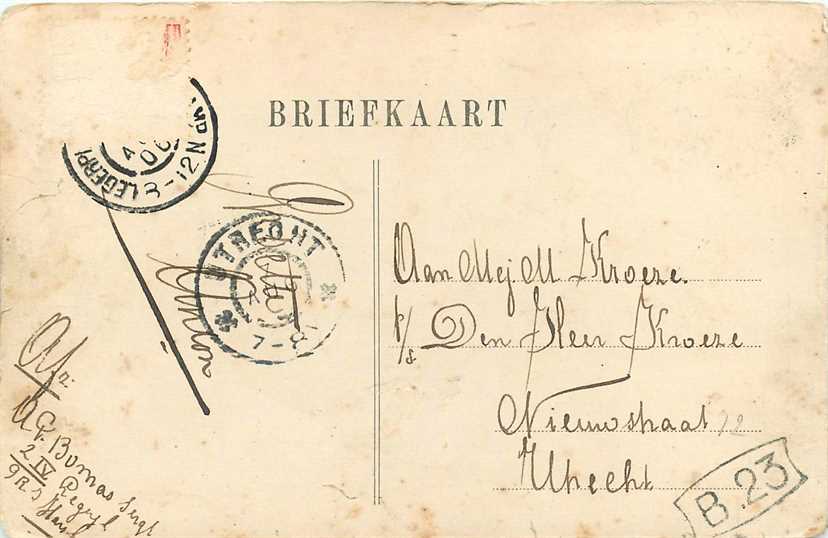 BRIEFKAART
LEGERPL
8-12N
UTRECHT
7-8
Aan Mej M Kroeze.
p/a Den Heer Kroeze
Nieuwstraat 12
Utrecht
B.23
Afz:
Bomas Sergt
2 IV Reg